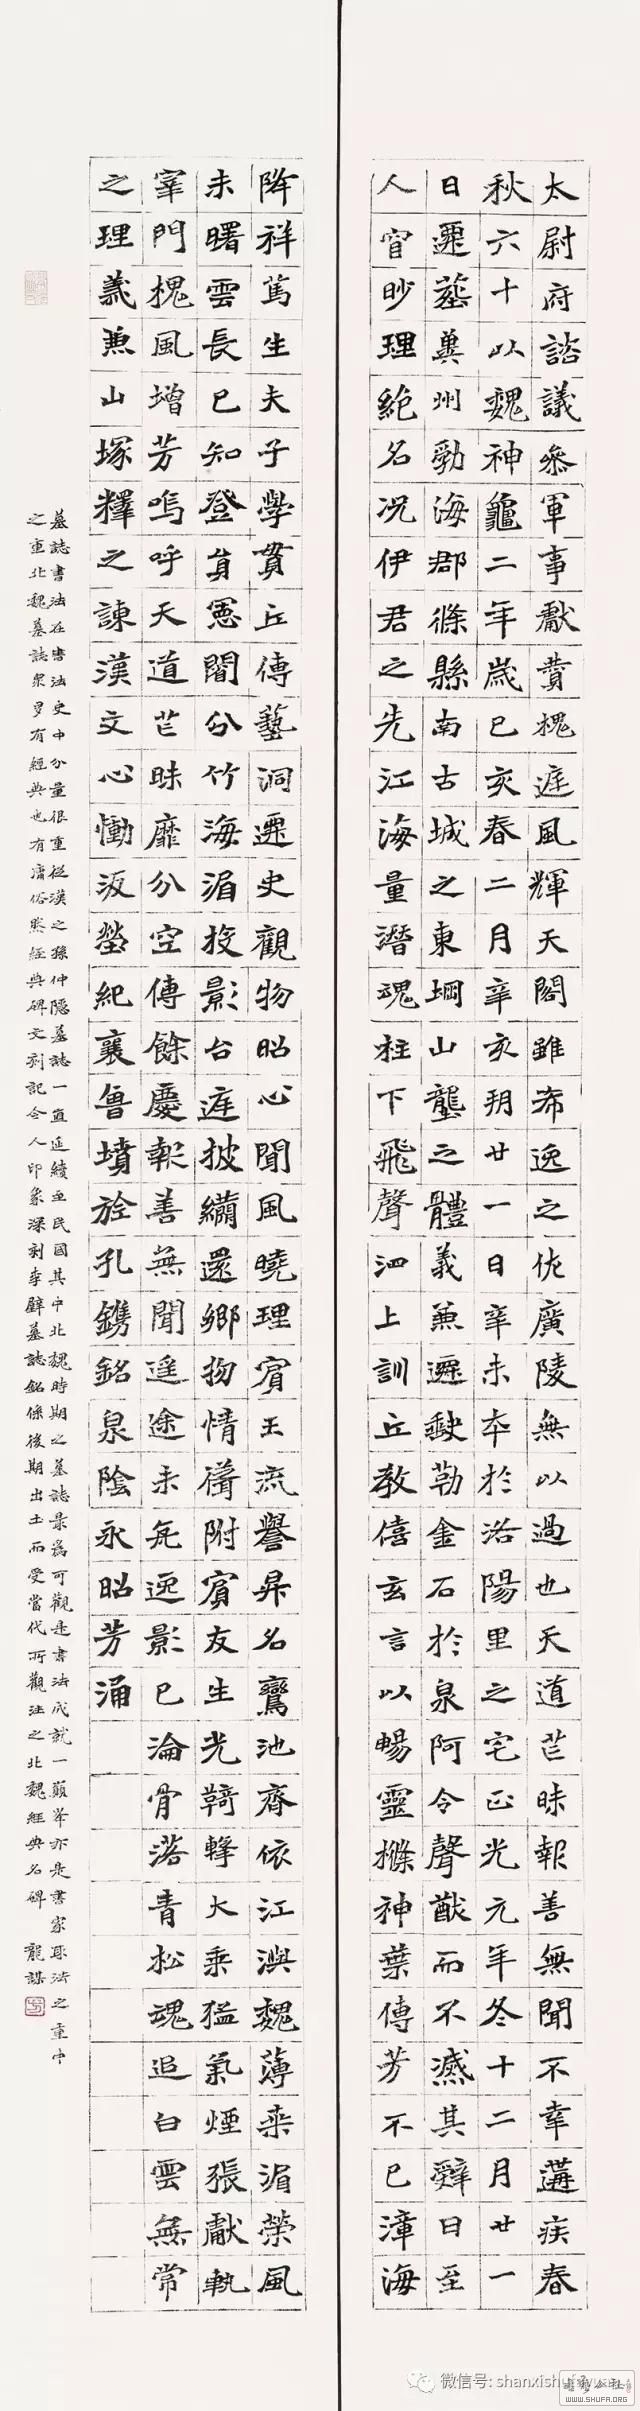 太尉府諮議參軍事獻賛槐庭風輝天閣雖希逸之佐廣陵無以過也天道芒昧報善無聞不幸遘疾春
秋六十以魏神龜二年歲已亥春二月辛亥朔廿一日辛未卒於洛陽里之宅正光元年冬十二月廿一
日遷葬冀州勃海郡條縣南古城之東堈山壟之體義兼遷缺勒金石於泉阿令聲猷而不滅其辭曰至
人窅眇理絕名況伊君之先江海量潛魂柱下飛聲泗上訓丘教僖玄言以暢靈條神葉傳芳不已漳海
降祥篤生夫子學貫丘傳藝洞遷史觀物昭心聞風曉理賓王流譽昇名鸞池齊依江澳魏薄梁湄榮風
未曙雲長已知登員憲閣分竹海湄投影台庭披繡還鄉物情舊附賓友生光鞫蜂大乘猛氣煙張獻執
宰門槐風增芳嗚呼天道芒昧靡分空傳餘慶報善無聞遥途未死逸影已淪骨落青松魂追白雲無常
之理義兼山塚釋之諫漢文心慟汳塋紀襄魯墳旌孔鐫銘泉陰永昭芳涌
墓誌書法在書法史中分量很重從漢之孫仲隱墓誌一直延續至民國其中北魏時期之墓誌最為可觀是書法成就一巔峯亦是書家取法之重中
之重北魏墓誌眾多有經典也有庸俗然經典碑文刻記令人印象深刻李壁墓誌銘係後期出土而受當代所觀注之北魏經典名碑 龍謀
微信号: shanxishufayuan
WWW.SHUFA.ORG